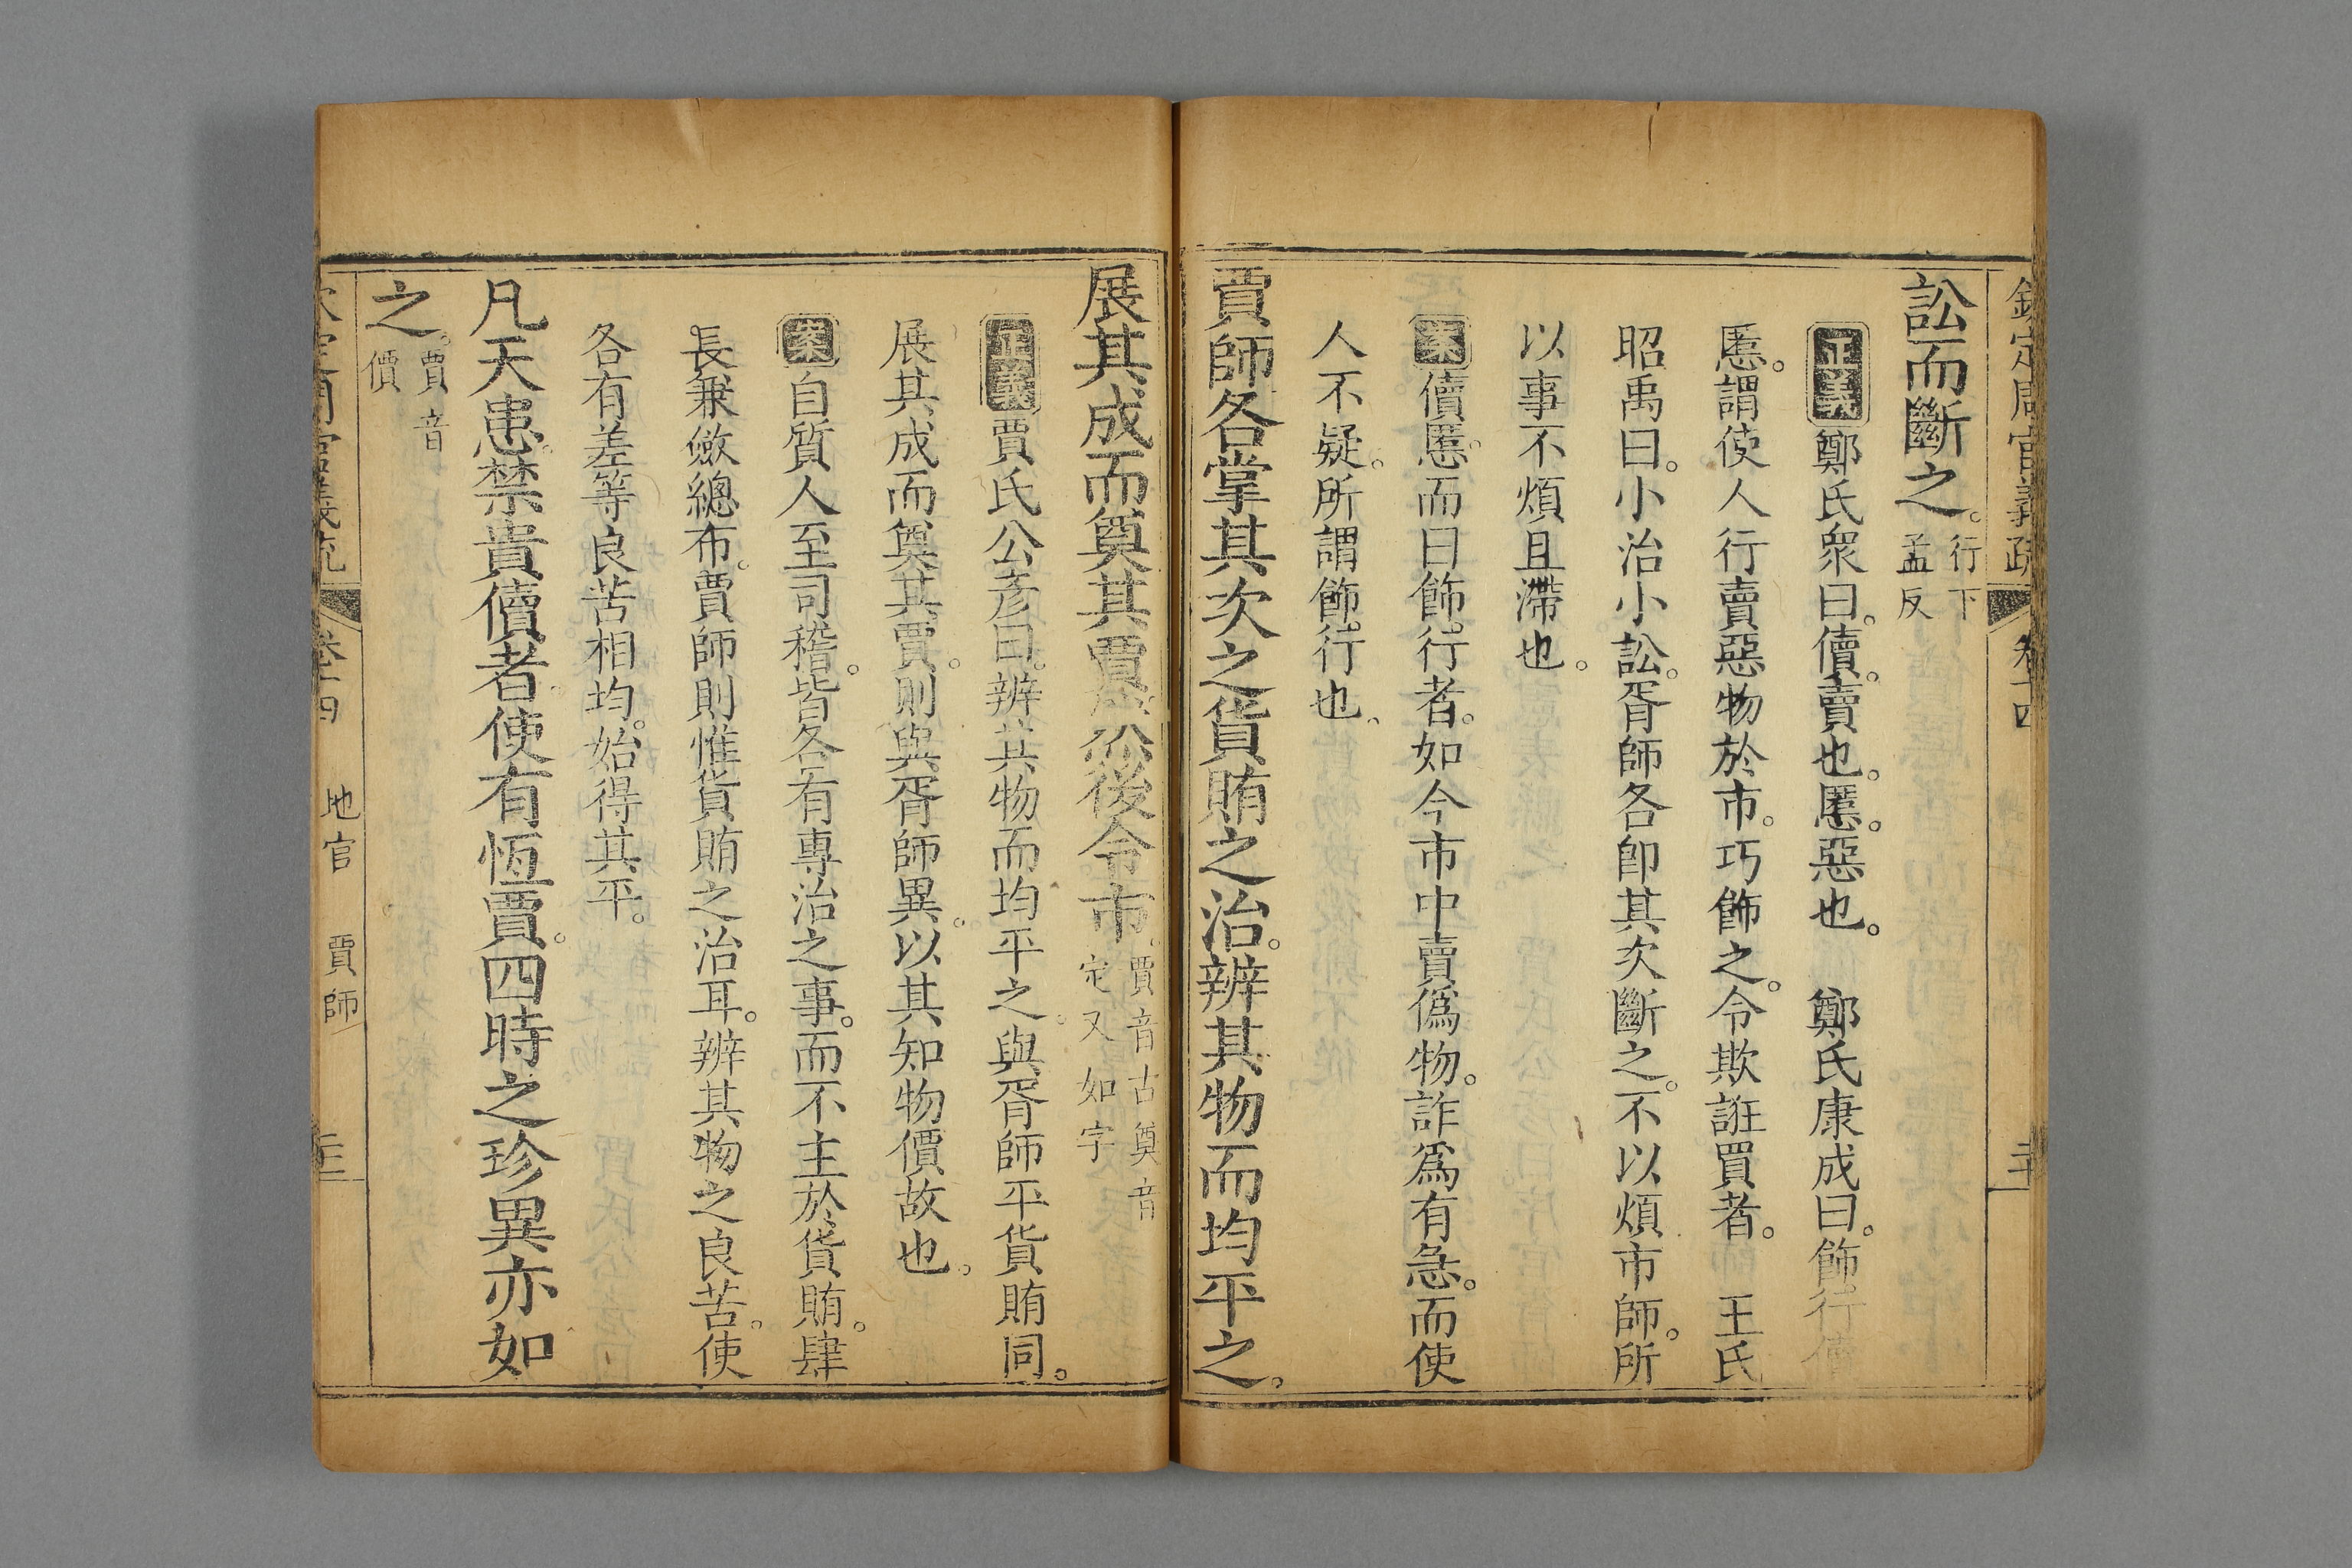 欽定周官義疏 卷十四 二十
訟而斷之。行下孟反
正義 鄭氏衆曰。儥。賣也。慝。惡也。 鄭氏康成曰。飾行儥
慝。謂使人行賣惡物於市。巧飾之。令欺誑買者。 王氏
昭禹曰。小治小訟。胥師各卽其次斷之。不以煩市師。所
以事不煩且滯也。
案 儥慝。而曰飾。行者。如今市中賣僞物。詐爲有急。而使
人不疑。所謂飾。行也。
賈師各掌其次之貨賄之治。辨其物而均平之。
展其成而奠其賈。然後令市。賈音古奠音定又如字
正義 賈氏公彥曰。辨其物而均平之。與胥師平貨賄同。
展其成而奠其賈。則與胥師異。以其知物價故也。
案 自質人至司稽。皆各有專治之事。而不主於貨賄。肆
長兼斂總布。賈師則惟貨賄之治耳。辨其物之良苦。使
各有差等良苦相均。始得其平。
凡天患。禁貴儥者。使有恆賈。四時之珍異亦如
之。賈音價
欽定周官義疏 卷十四 地官 賈師